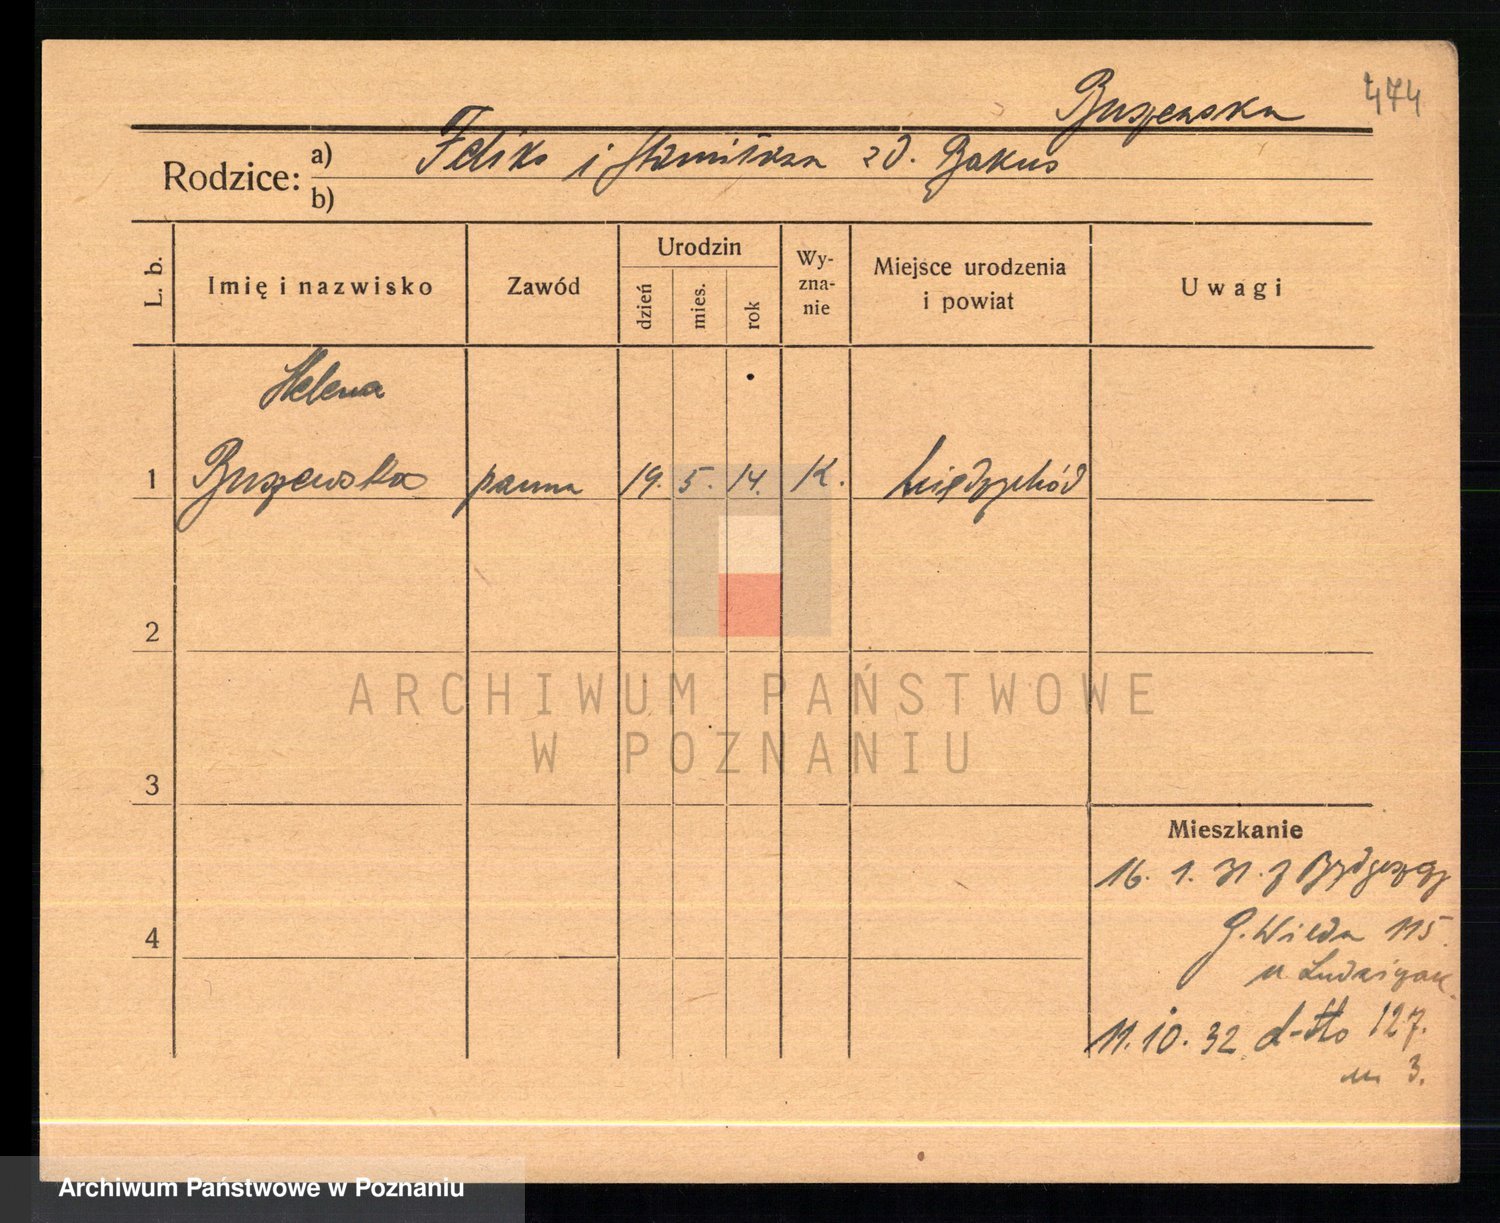 474
Buszewska
Rodzice: a) Feliks i Stanisława zd. Bakus
b)
L. b.
Imię i nazwisko
Zawód
Urodzin
dzień
mies.
rok
Wy-
zna-
nie
Miejsce urodzenia
i powiat
Uwagi
Helena
1 Buszewska panna 19. 5. 14. K. Międzychód
2
3
4
Mieszkanie
16. 1. 31. z Bydgoszczy
G. Wilda 115.
u
11. 10. 32 d-tto 127.
m 3.
ARCHIWUM PAŃSTWOWE
W POZNANIU
Archiwum Państwowe w Poznaniu